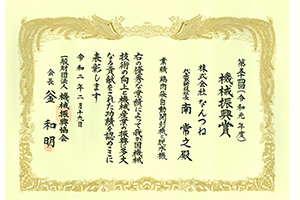 第五十四回(令和元年度)
機械振興賞
株式会社 なんつね
代表取締役社長 南 常之殿
業績 鶏肉用自動開封機と脱水機
右の優秀な業績によって我が国機械
技術の向上と機械産業の振興に多大
なる貢献をされた功績を認めここに
表彰します
令和二年二月十九日
一般財団法人 機械振興協会
会長 釡 和明